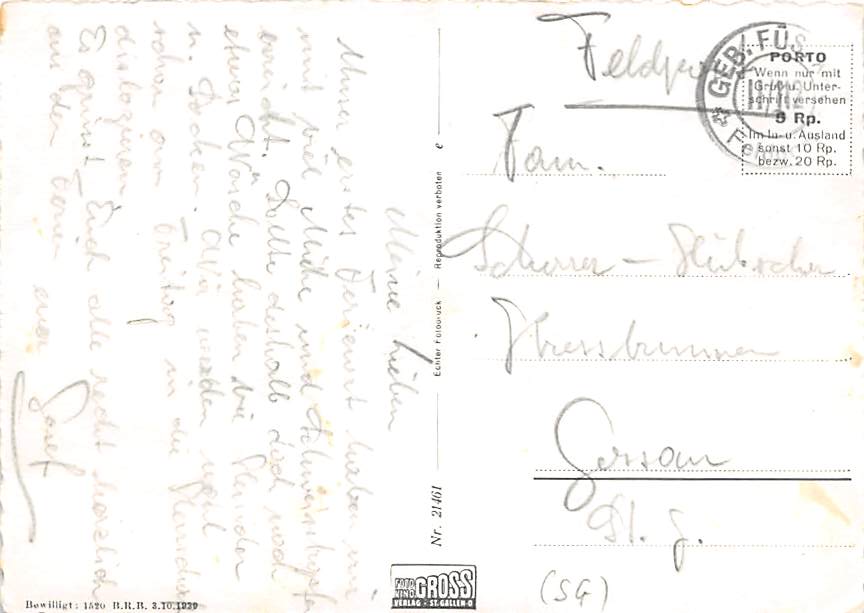 Meine Lieben
Unser erster Ferienort haben wir
mit viel Mühe und Schweisstropfen
erreicht. Sollte deshalb doch noch
etwas Wäsche haben wie Hemder
u. Socken. Wir werden wohl
schon am Freitag in die
dislozieren.
Es grüsst Euch alle recht herzlich
aus den Ferien euer
Josef
Feldpost
GEB. FÜS
PORTO
Wenn nur mit
Gruss u. Unter-
schrift versehen
5 Rp.
Im In- u. Ausland
sonst 10 Rp.
bezw. 20 Rp.
Fam.
Scherrer -
Gossau
St. G.
(SG)
Echter Fotodruck — Reproduktion verboten
Nr. 21461
FOTO KINO GROSS
VERLAG · ST. GALLEN-O
Bewilligt: 1520 B.R.B. 3.10.1939